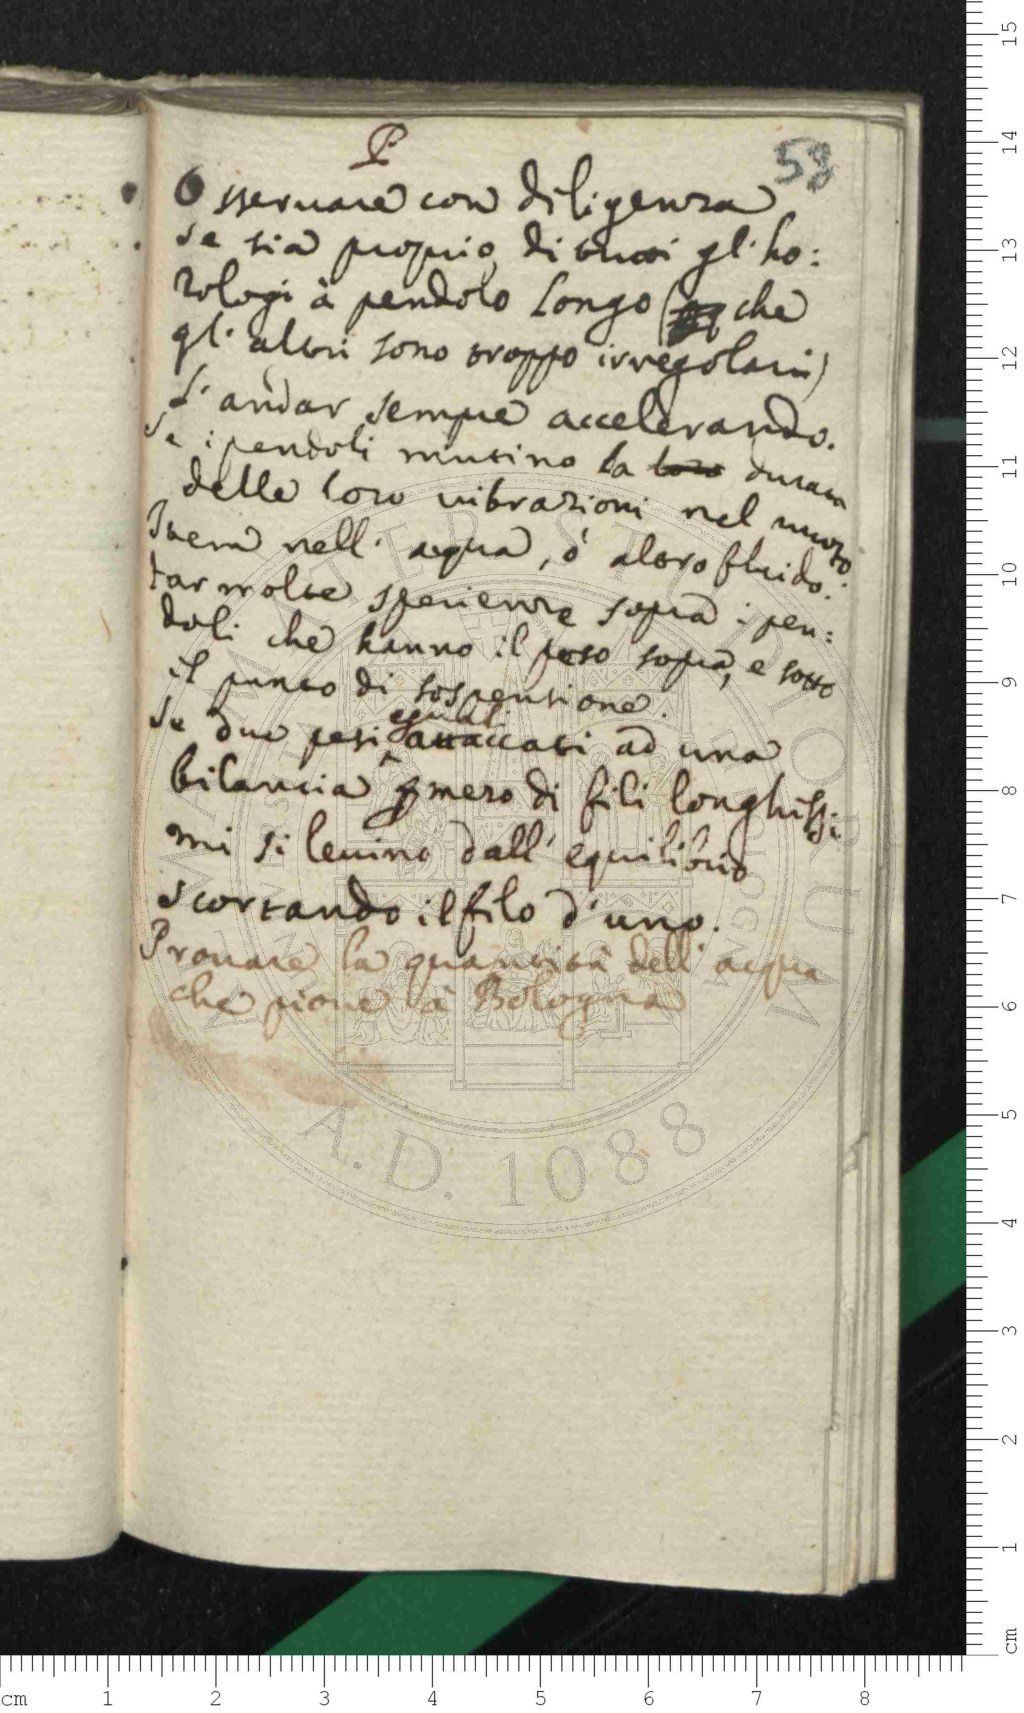 P
53
Osseruare con diligenza
se sia proprio di tutti gl' ho:
rologi à pendolo longo (che
gl' altri sono troppo irregolari)
d' andar sempre accelerando.
Se i pendoli mutino la loro durata
delle loro uibrazioni nel uuoto.
Iuem nell' acqua, ò altro fluido.
Far molte sperienze sopra i pen:
doli che hanno il peso sopra, e sotto
il punto di sospensione.
Se due pesi eguali attaccati ad una
bilancia per mezo di fili longhissi:
mi si leuino dall' equilibrio
scortando il filo d' uno.
Prouare la quantità dell' acqua
che pioue à Bologna
ALMA MATER STUDIORUM
A.D. 1088
cm 1 2 3 4 5 6 7 8
15
14
13
12
11
10
9
8
7
6
5
4
3
2
1
cm